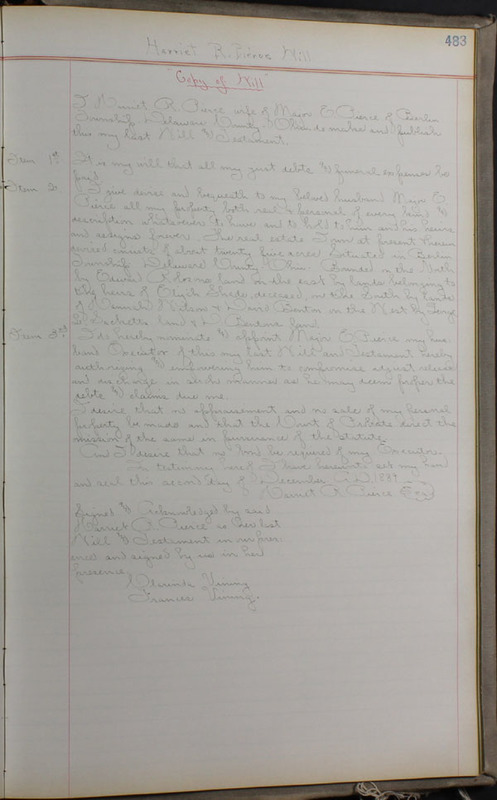 483
Harriet R. Pierce Will
Copy of Will
I Harriet R. Pierce wife of Major E. Pierce of Berlin
Township Delaware County Ohio do make and publish
this my last Will & Testament.
Item 1st It is my will that all my just debts & funeral expenses be
paid
Item 2. I give devise and bequeath to my beloved husband Major E.
Pierce all my property both real & personal of every kind &
description whatsoever to have and to hold to him and his heirs
and assigns forever. The real estate I own at present
consists of about twenty five acres situated in Berlin
Township Delaware County Ohio. Bounded on the North
by Edward land on the east by lands belonging to
the heirs of Elijah deceased on the South by lands
of Hannah & David Benton on the West by George
land & Benton land.
Item 3rd I do hereby nominate & appoint Major E. Pierce my hus
band Executor of this my last Will and Testament hereby
authorizing & empowering him to compromise adjust release
and discharge in such manner as he may deem proper the
debts & claims due me.
I desire that no appraisement and no sale of my personal
property be made and that the Court of Probate direct the
omission of the same in pursuance of the Statute.
And I desire that no bond be required of my Executor.
In testimony hereof I have hereunto set my hand
and seal this second day of December A.D. 1889
Harriet R. Pierce Seal
Signed & Acknowledged by said
Harriet R. Pierce as her last
Will & Testament in our pres
ence and signed by us in her
presence
Clorinda Vining
Frances Vining.